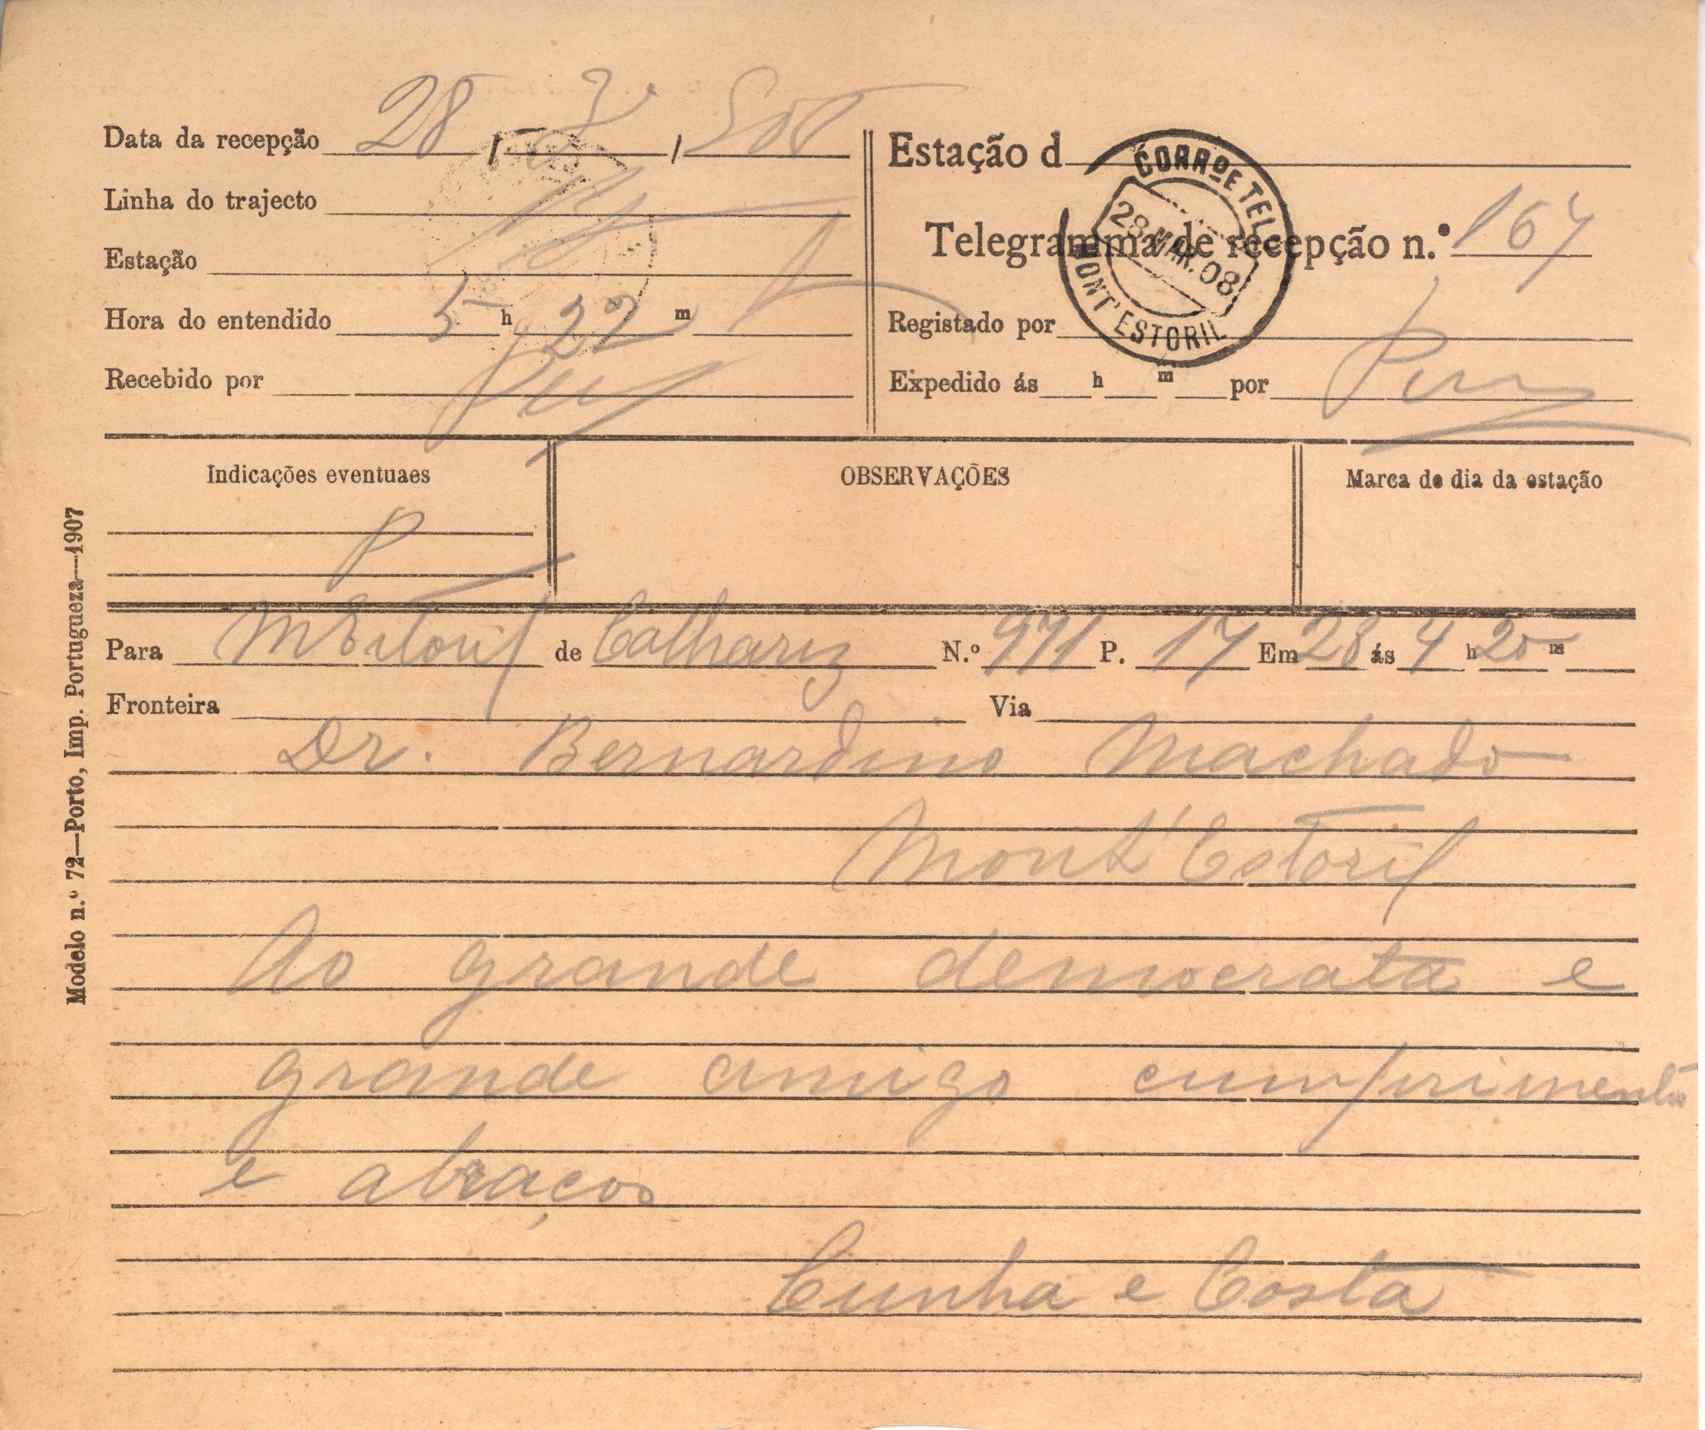 Data da recepção 28 / 3 /
Linha do trajecto
Estação
Hora do entendido 5 h 27 m
Recebido por
Estação d
CORRº E TEL.
28. MAR. 08
MONT'ESTORIL
Telegramma de recepção n.º 167
Registado por
Expedido ás h m por
Indicações eventuaes
P
OBSERVAÇÕES
Marca de dia da estação
Para M Estoril de Calhariz N.º 991 P. 17 Em 28 ás 4 h 20 m
Fronteira Via
Dr. Bernardino Machado
Mont'Estoril
Ao grande democrata e
grande amigo cumprimentos
e abraços
Cunha e Costa
Modelo n.º 72—Porto, Imp. Portugueza—1907